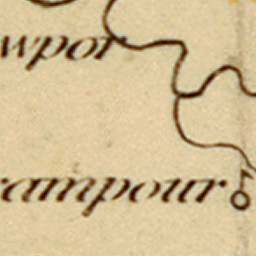 wpor
rampour